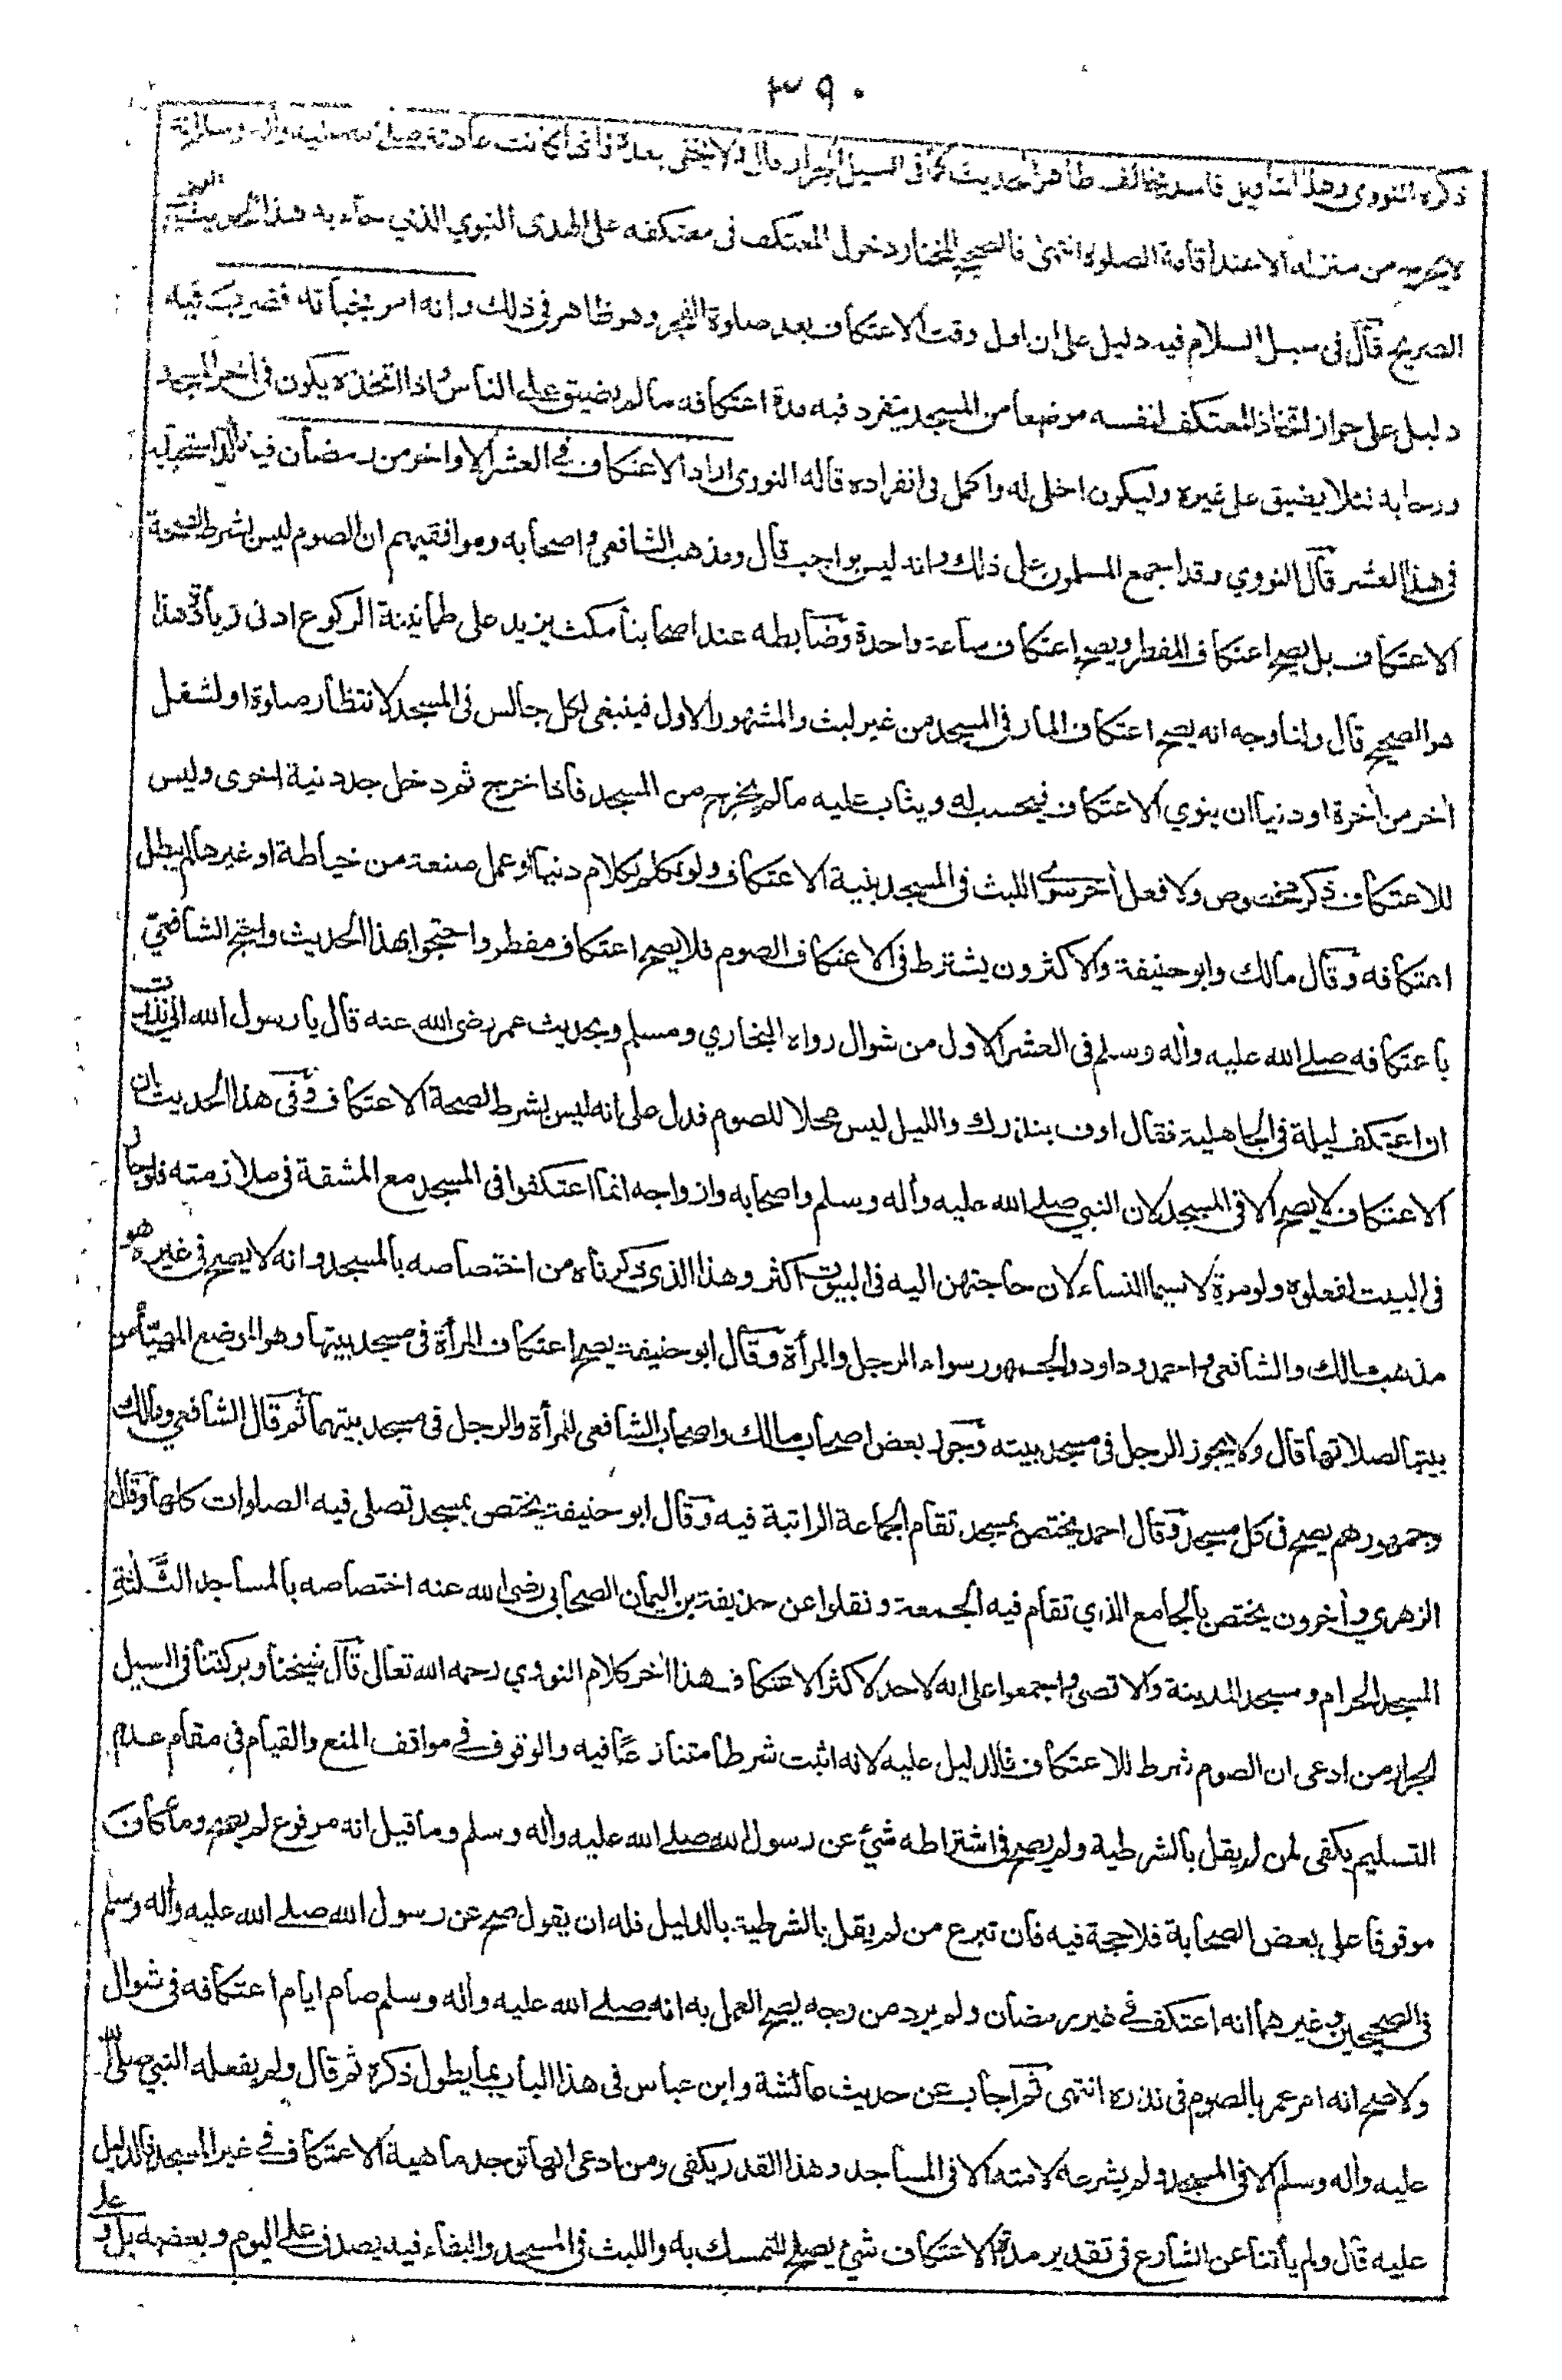 ٣٩٠
ذكره النووى وهذا التأويل فاسد يخالف ظاهر الحديث كما فى السيل الجرار قال ولا يخفى بعده فانها كانت عادته صلى الله عليه وأله وسلم انه
لا يخرج من منزله الا عند اقامة الصلوة انتهى فالصحيح المختار دخول المعتكف فى معتكفه على الهدى النبوي الذي جاء به هذا الحديث الصحيح
الصريح قال فى سبل السلام فيه دليل على ان اول وقت الاعتكاف بعد صلوة الفجر وهو ظاهر فى ذلك وانه امر بخبائه فضرب فيه
دليل على جواز اتخاذ المعتكف لنفسه موضعا من المسجد ينفرد فيه مدة اعتكافه ما لم يضيق على الناس واذا اتخذه يكون فى اخر المسجد
ورحابه لئلا يضيق على غيره وليكون اخلى له واكمل فى انفراده قاله النورى اراد الاعتكاف فى العشر الاواخر من رمضان فيه تأكد استحبابه
فى هذا العشر قال النووي وقد اجمع المسلمون على ذلك وانه ليس بواجب قال ومذهب الشافعى واصحابه وموافقيهم ان الصوم ليس بشرط لصحة
الاعتكاف بل يصح اعتكاف المفطر ويصح اعتكاف ساعة واحدة وضابطه عند اصحابنا مكث يزيد على طمانينة الركوع ادنى زيادة هذا
هو الصحيح قال ولنا وجه انه يصح اعتكاف المار فى المسجد من غير لبث والمشهور الاول فينبغى لكل جالس فى المسجد لانتظار صلوة او لشغل
أخر من أخرة او دنيا ان ينوي الاعتكاف فيحسب له ويثاب عليه ما لم يخرج من المسجد فاذا خرج ثم دخل جدد نية اخرى وليس
للاعتكاف ذكر مخصوص ولا فعل أخر سوى اللبث فى المسجد بنية الاعتكاف ولو تكلم بكلام دنيا او عمل صنعة من خياطة او غيرها لم يبطل
اعتكافه وقال مالك وابو حنيفة والاكثرون يشترط فى الاعتكاف الصوم فلا يصح اعتكاف مفطر واحتجوا بهذا الحديث واحتج الشافعي
باعتكافه صلے الله عليه وأله وسلم فى العشر الاول من شوال رواه البخاري ومسلم وبحديث عمر رضى الله عنه قال يا رسول الله انى نذرت
ان اعتكف ليلة فى الجاهلية فقال اوف بنذرك والليل ليس محلا للصوم فدل على انه ليس بشرط لصحة الاعتكاف وفى هذا الحديث ان
الاعتكاف لا يصح الا فى المسجد لان النبي صلے الله عليه وأله وسلم واصحابه وازواجه انما اعتكفوا فى المسجد مع المشقة فى ملازمته فلو جاز
فى البيت لفعلوه ولو مرة لا سيما النساء لان حاجتهن اليه فى البيوت اكثر وهذا الذى ذكرناه من اختصاصه بالمسجد وانه لا يصح فى غيره هو
مذهب مالك والشافعى واحمد وداود والجمهور سواء الرجل والمرأة وقال ابو حنيفة يصح اعتكاف المرأة فى مسجد بيتها وهو الموضع المهيأ من
بيتها لصلاتها قال ولا يجوز الرجل فى مسجد بيته وجوز بعض اصحاب مالك واصحاب الشافعى للمرأة والرجل فى مسجد بيتهما ثم قال الشافعي ومالك
وجمهورهم يصح فى كل مسجد وقال احمد يختص بمسجد تقام الجماعة الراتبة فيه وقال ابو حنيفة يختص بمسجد تصلى فيه الصلوات كلها وقال
الزهري وأخرون يختص بالجامع الذي تقام فيه الجمعة ونقلوا عن حذيفة بن اليمان الصحابى رضى الله عنه اختصاصه بالمساجد الثلثة
المسجد الحرام ومسجد المدينة والاقصى واجمعوا على انه لا حد لاكثر الاعتكاف هذا أخر كلام النووي رحمه الله تعالى قال شيخنا وبركتنا فى السيل
الجرار من ادعى ان الصوم شرط للاعتكاف فالدليل عليه لانه اثبت شرطا متنازعا فيه والوقوف فى مواقف المنع والقيام فى مقام عدم
التسليم يكفى لمن لم يقل بالشرطية ولم يصح فى اشتراطه شئ عن رسول الله صلے الله عليه وأله وسلم وما قيل انه مرفوع لم يصح وما كان
موقوفا على بعض الصحابة فلا حجة فيه فان تبرع من لم يقل بالشرطية بالدليل فله ان يقول صح عن رسول الله صلے الله عليه وأله وسلم
فى الصحيحين وغيرهما انه اعتكف فى غير رمضان ولم يرد من وجه يصح العمل به انه صلے الله عليه وأله وسلم صام ايام اعتكافه فى شوال
ولا صح انه امر عمر بالصوم فى نذره انتهى ثم اجاب عن حديث عائشة وابن عباس فى هذا الباب بما يطول ذكره ثم قال ولم يفعله النبي صلى الله
عليه وأله وسلم الا فى المسجد ولم يشرعه لامته الا فى المساجد وهذا القدر يكفى ومن ادعى انها توجد ماهية الاعتكاف فى غير المسجد فالدليل
عليه قال ولم يأتنا عن الشارع فى تقدير مدة الاعتكاف شئ يصلح للتمسك به واللبث فى المسجد والبقاء فيه يصدق على اليوم وبعضه بل وعلى